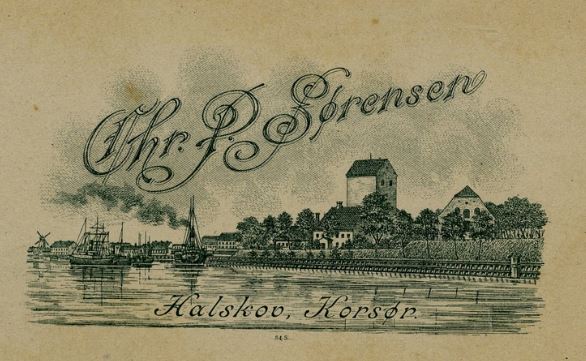 Chr. P. Sørensen
Halskov, Korsør.